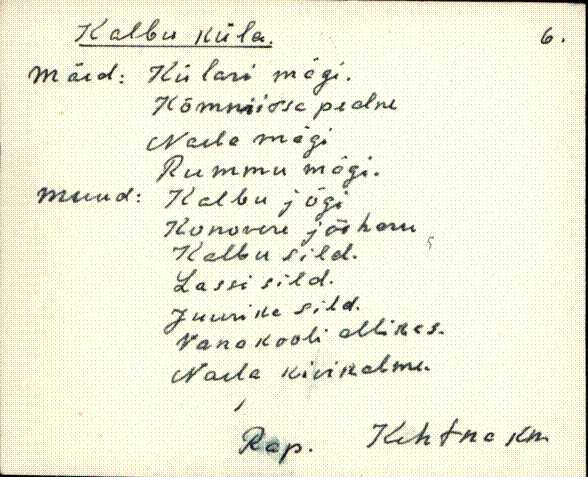 Kalbu küla. 6.
Mäed: Külari mägi.
Kõmmiossa pealne
Naela mägi
Rummu mägi.
Muud: Kalbu jõgi
Konovere jõeharu
Kalbu sild.
Lassi sild.
Juurika sild.
Vanakooli allikas.
Naela kivikalme.
Rap. Kehtna km